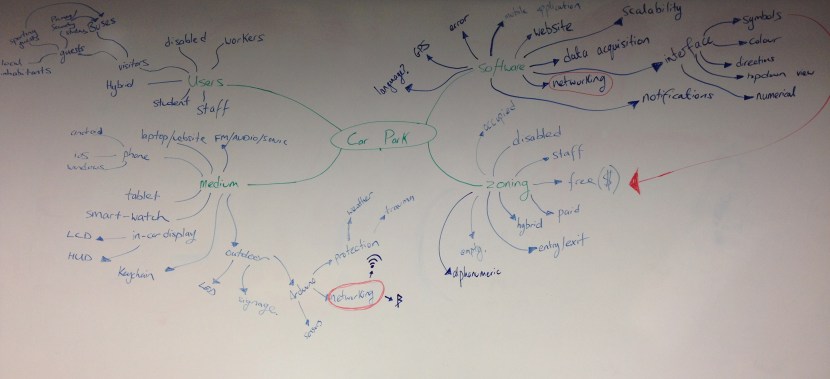 buses
sporting
guests
local
inhabitants
guests
visitors
disabled
workers
Hybrid
Users
student
staff
Car Park
error
mobile application
website
scalability
GPS
data acquisition
language?
Software
networking
notifications
interface
symbols
colour
numerical
android
iOS
windows
phone
laptop/website
Medium
tablet
smart-watch
LCD
in-car display
HUD
Keychain
outdoor
LED
signage
Arduino
weather
protection
networking
occupied
disabled
staff
zoning
free ($)
paid
hybrid
entry/exit
empty
alphanumeric